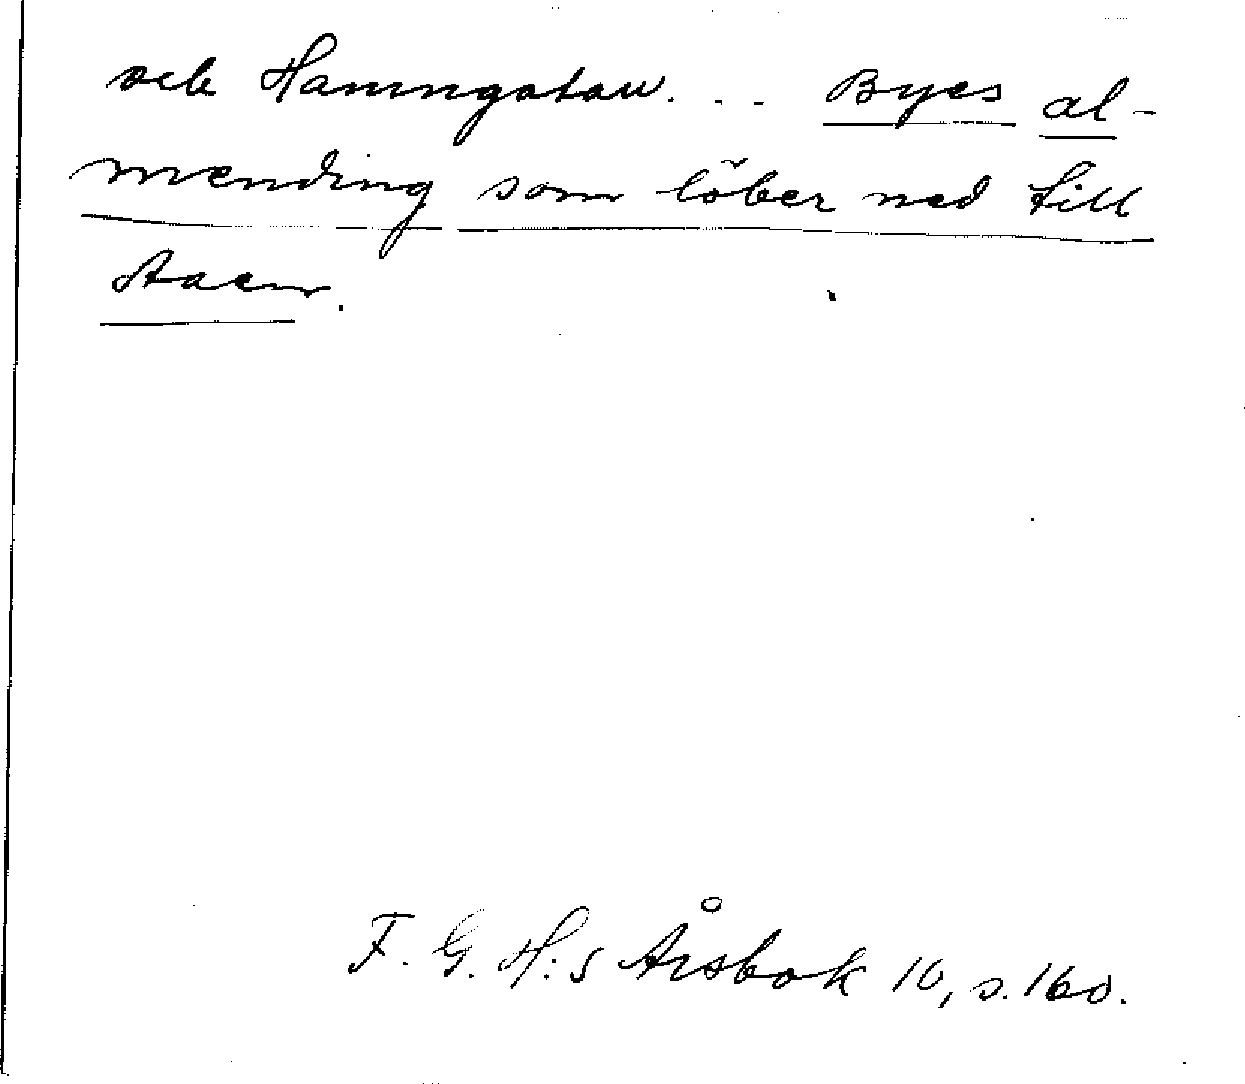 och Hamngatan. .. Byes al-
mending som löber ned till
Aaen.
F. G. H:s Årsbok 10, s. 160.